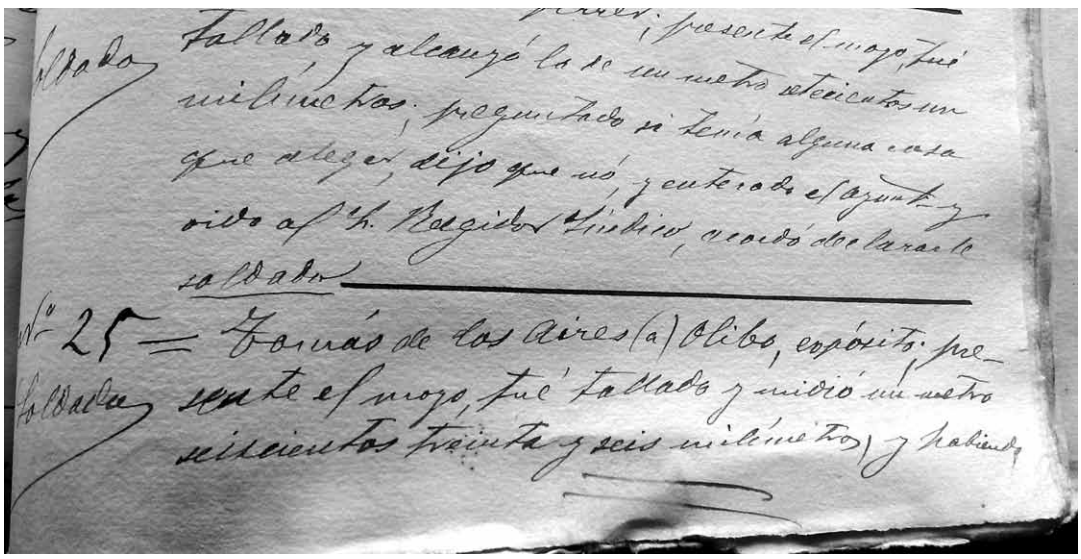 presente el mozo, fué
Soldado
tallado y alcanzó la de un metro setecientos un
milímetros; preguntado si tenía alguna cosa
que alegar, dijo que nó, y enterado el Ayunt. y
oido al Sr. Regidor Síndico, acordó declararle
soldado
Nº 25 = Tomás de los Aires (a) Olibo, expósito; pre-
Soldado sente el mozo, fué tallado y midió un metro
seiscientos treinta y seis milímetros, y habiendo